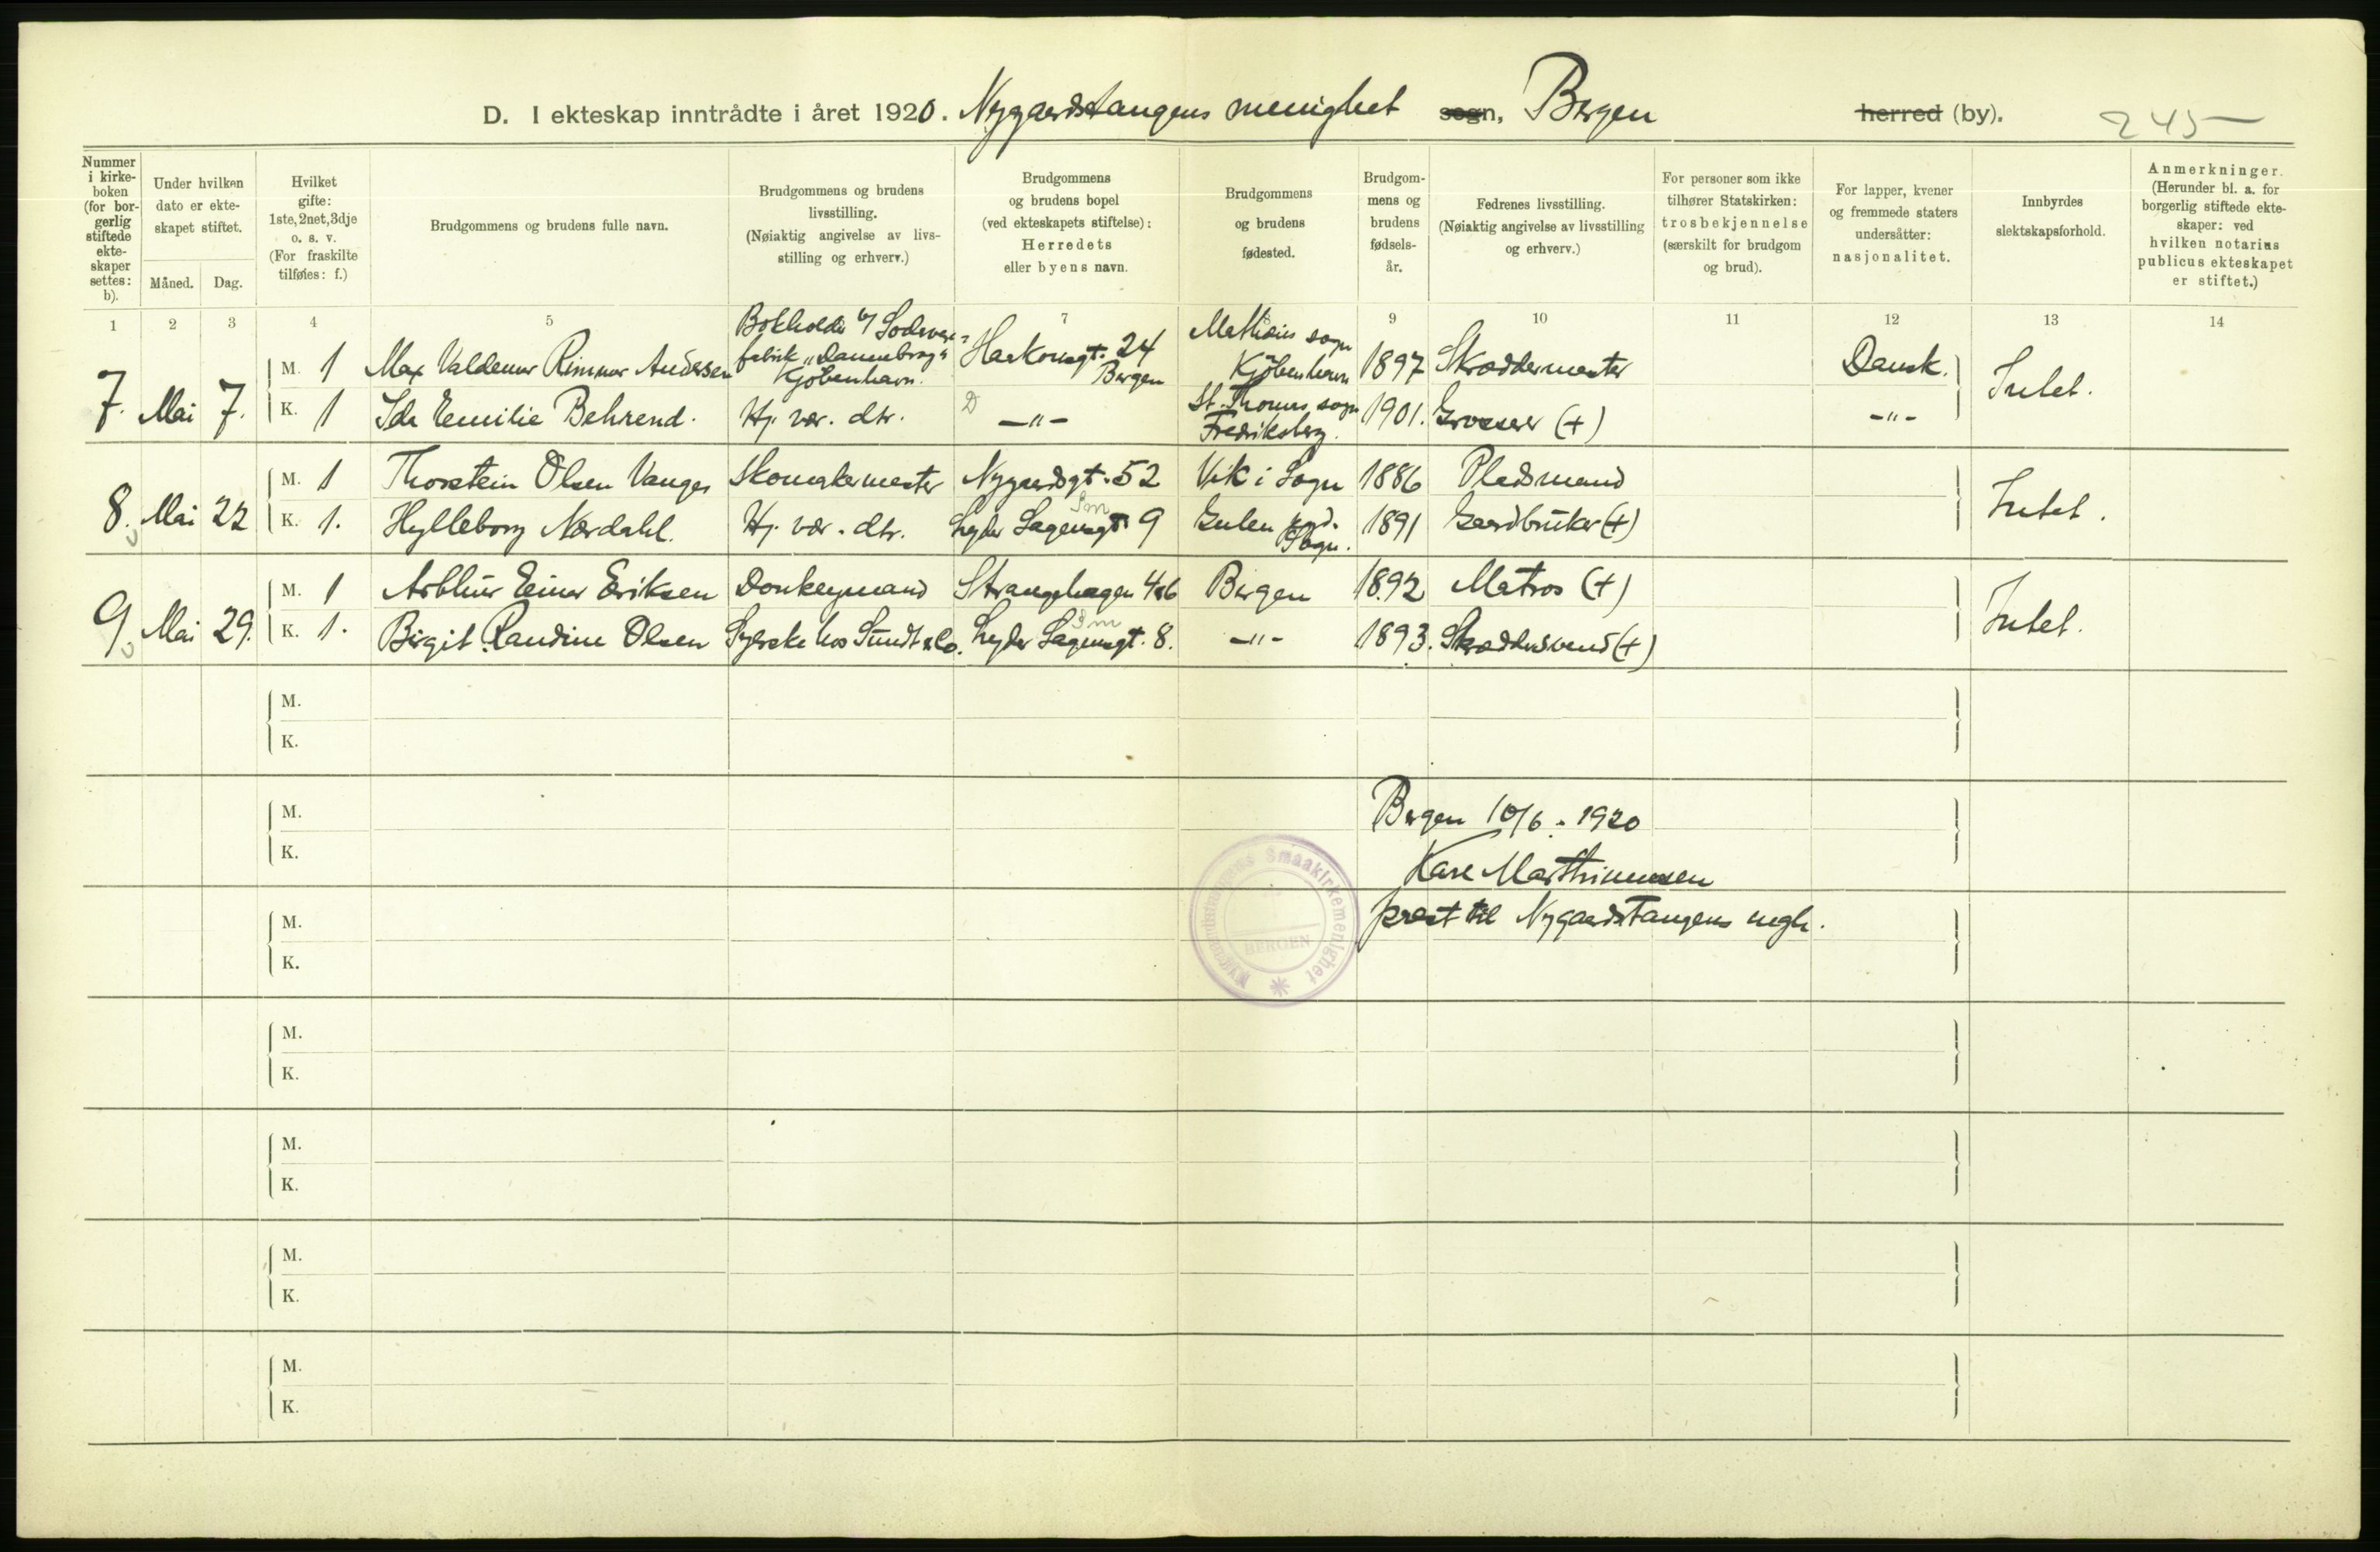 D. I ekteskap inntrådte i året 1920. Nygaardstangens menighet sogn, Bergen herred (by). 245
Nummer i kirke-boken (for bor-gerlig stiftede ekte-skaper settes: b).
Under hvilken dato er ekte-skapet stiftet.
Måned. Dag.
Hvilket gifte: 1ste, 2net, 3dje o. s. v. (For fraskilte tilføies: f.)
Brudgommens og brudens fulle navn.
Brudgommens og brudens livsstilling. (Nøiaktig angivelse av livs-stilling og erhverv.)
Brudgommens og brudens bopel (ved ekteskapets stiftelse): Herredets eller byens navn.
Brudgommens og brudens fødested.
Brudgom-mens og brudens fødsels-år.
Fedrenes livsstilling. (Nøiaktig angivelse av livsstilling og erhverv.)
For personer som ikke tilhører Statskirken: trosbekjennelse (særskilt for brudgom og brud).
For lapper, kvener og fremmede staters undersåtter: nasjonalitet.
Innbyrdes slektskapsforhold.
Anmerkninger. (Herunder bl. a. for borgerlig stiftede ekte-skaper: ved hvilken notarius publicus ekteskapet er stiftet.)
1 2 3 4 5 7 8 9 10 11 12 13 14
7. Mai 7. M. 1 Max Valdemar Rimmer Andersen Bokholder v/ Sodavand- fabrik "Danneborg" Kjöbenhavn. Haakonsgt. 24 Bergen Mathæus sogn Kjöbenhavn 1897 Skræddermester Dansk. Intet.
K. 1 Ida Emilie Behrend. Hj. vær. dtr. D -"- St. Thomas sogn Fredriksberg. 1901. Grosserer (+) -"-
8. Mai 22 M. 1 Thorstein Olsen Vanges Skomakermester Nygaardsgt. 52 Vik i Sogn 1886 Pladsmand Intet.
K. 1. Hylleborg Nærdahl. Hj. vær. dtr. Lyder Sagensgt. 9 Gulen Sogn. 1891 Gaardbruker (+)
9 Mai 29. M. 1 Arthur Einar Eriksen Donkeymand Strangehagen 4b Bergen 1892 Matros (+) Intet.
K. 1. Birgit Randine Olsen Syerske hos Sundt & Co. Lyder Sagensgt. 8. -"- 1893. Skræddersvend (+)
M.
K.
M.
K.
Bergen 10/6 - 1920
Kare Marthinussen
prest til Nygaardstangens mgh.
Nygaardstangens Smaakirkemenighet
BERGEN
M.
K.
M.
K.
M.
K.
M.
K.
M.
K.